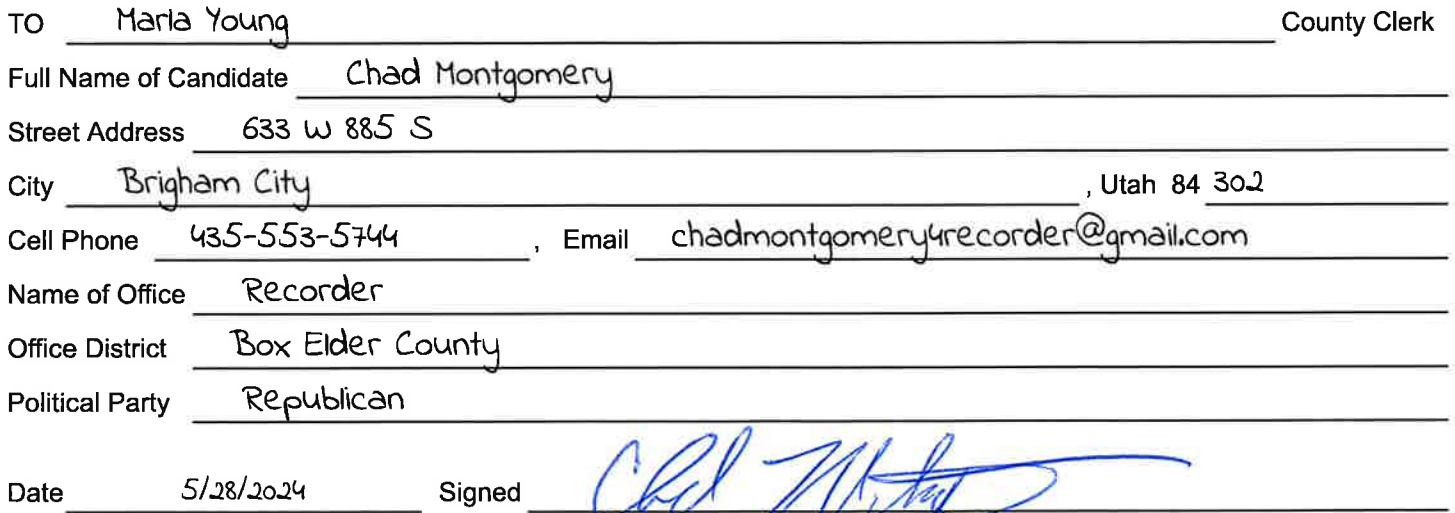 TO Marla Young County Clerk
Full Name of Candidate Chad Montgomery
Street Address 633 W 885 S
City Brigham City , Utah 84 302
Cell Phone 435-553-5744 , Email chadmontgomery4recorder@gmail.com
Name of Office Recorder
Office District Box Elder County
Political Party Republican
Date 5/28/2024 Signed